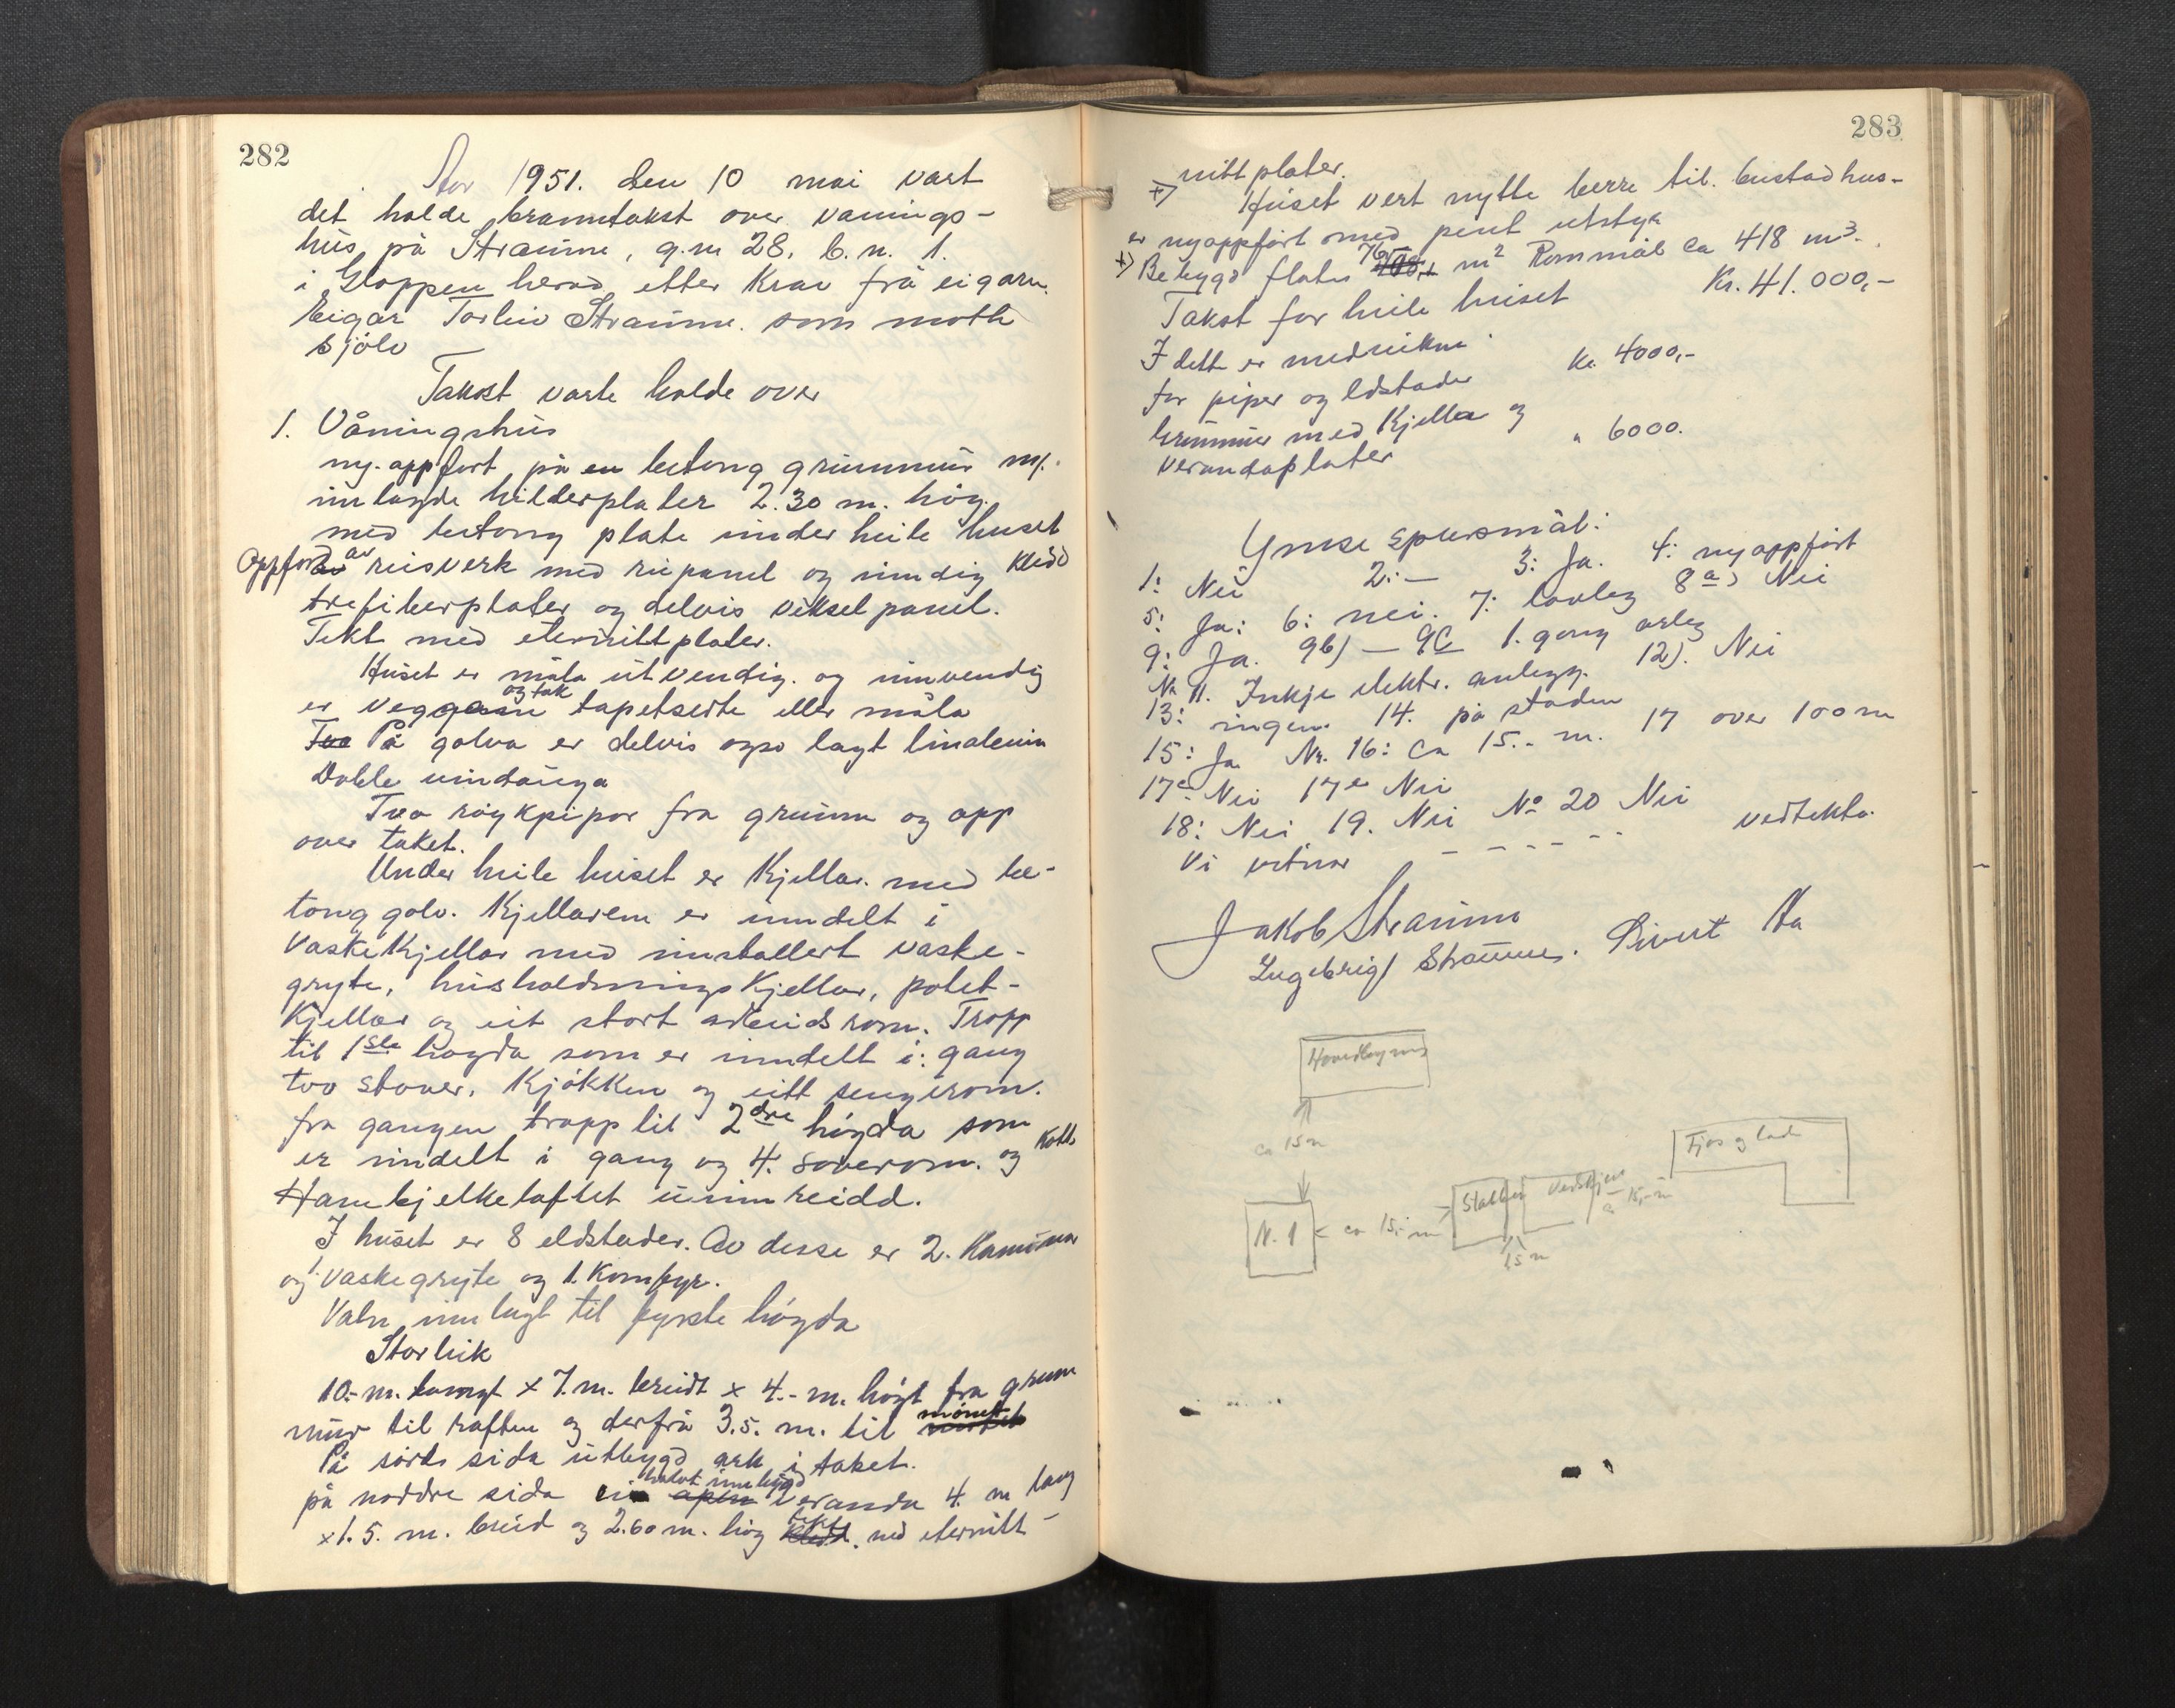 282
Aar 1951. den 10 mai vart
det halde branntakst over vanings-
hus på Straume, g.nr 28, b.n. 1.
i Gloppen herad etter krav frå eigarn.
Eigar Torleiv Straume. som møtte
sjølv
Takst varte halde over
1. Våningshus
ny-oppført på en betong grunnmur m/.
innlagde hilderplater 2.30 m. høg.
med betong plate under heile huset
Oppført av reisverk med rupanel og inndig kledd
trefiberplater og delvis veksel panel.
Tekt med eternittplater.
Huset er måla utvendig. og innvendig
er veggane og tak tapetserte eller måla
Tvo På golva er delvis ogso lagt linoleum
Doble vindauga
Tvo røykpipor fra grunn og opp
over taket.
Under heile huset er Kjellar. med be-
tong golv. Kjellaren er inndelt i
Vaskekjellar med installert vaske-
gryte, husholdningskjellar, potet-
kjellar og eit stort arbeidsrom. Tropp
til 1ste høgda som er inndelt i: gang
tvo stover, kjøkken og eitt sengerom.
fra gangen tropp til 2dre høgda som
er inndelt i gang og 4. soverom. og kott
Hanebjelkeloftet uinnreidd.
I huset er 8 eldstader. Av desse er 2. Kaminar
og 1. vaskegryte og 1. Komfyr.
Vatn innlagt til fyrste høgda
Storleik
10.- m. langt x 7. m. breidt x 4.- m. høgt fra grunn
mur til raften og derfrå 3.5. m. til mønet
På sørde sida utbygd ark i taket.
på nordre sida ein apen halvt innbygd veranda 4. m lang
x 1.5. m. breid og 2.60 m. høg kledd. tekt med eternitt-
283
nittplater.
+) Huset vert nytta berre til bustadhus-
er nyoppført med pent utstyr
+) Bebygd flate 76 m² Rommål ca 418 m³.
Takst for heile huset Kr. 41.000,-
I dette er medreikna
for piper og eldstader Kr. 4000,-
Grunnmur med Kjellar og
verandaplater " 6000.
Ymse spursmål:
1: Nei 2: — 3: Ja. 4: nyoppført
5: Ja: 6: nei. 7: lovleg 8a) Nei
9: Ja. 9b) — 9c 1. gong årleg
Nr 11. Inkje elektr. anlegg. 12). Nei
13: ingen. 14. på staden
15: Ja Nr. 16: Ca 15.- m. 17 over 100 m
17c Nei 17e Nei
18: Nei 19. Nei No 20 Nei
Vi vitnar - - - - - - vedtekta.
Jakob Straume
Ingebrigt Straume. Sivert Aa
Hovedbygning
ca 15 m
Fjøs og lade
Stabbur Vedskjul
ca 15,- m
N. 1
ca 15.- m
15 m